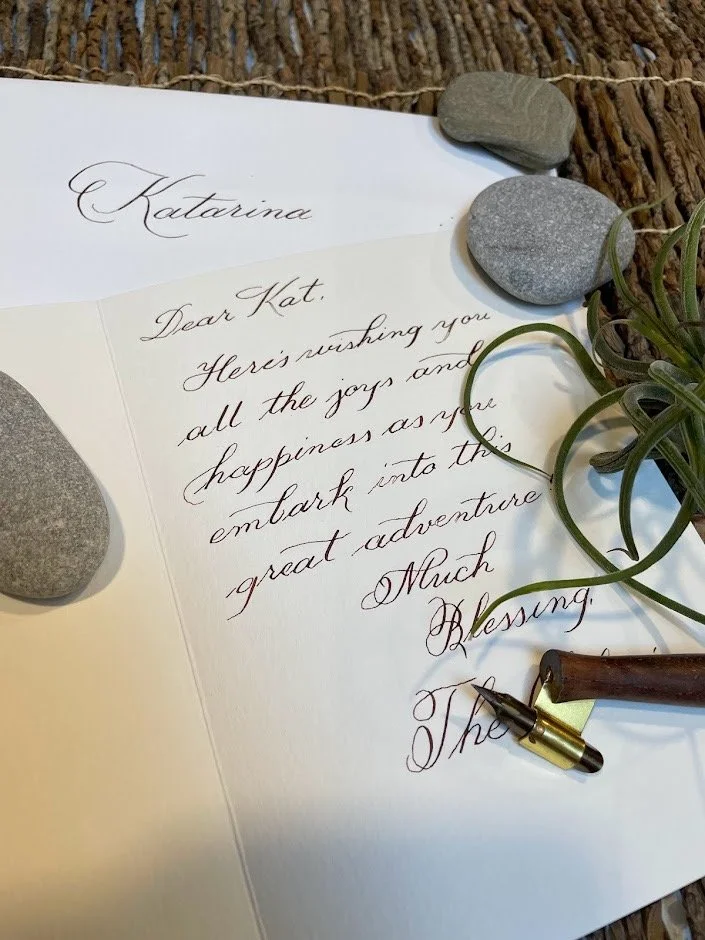 Katarina
Dear Kat,
Here's wishing you
all the joys and
happiness as you
embark into this
great adventure
Much
Blessing,
The